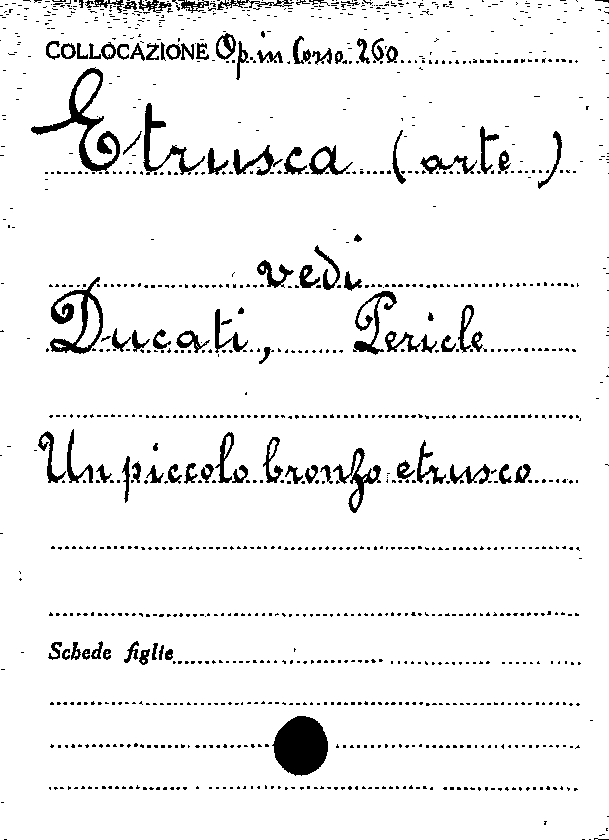 COLLOCAZIONE Op. in Corso 260
Etrusca (arte)
vedi
Ducati, Pericle
Un piccolo bronzo etrusco
Schede figlie